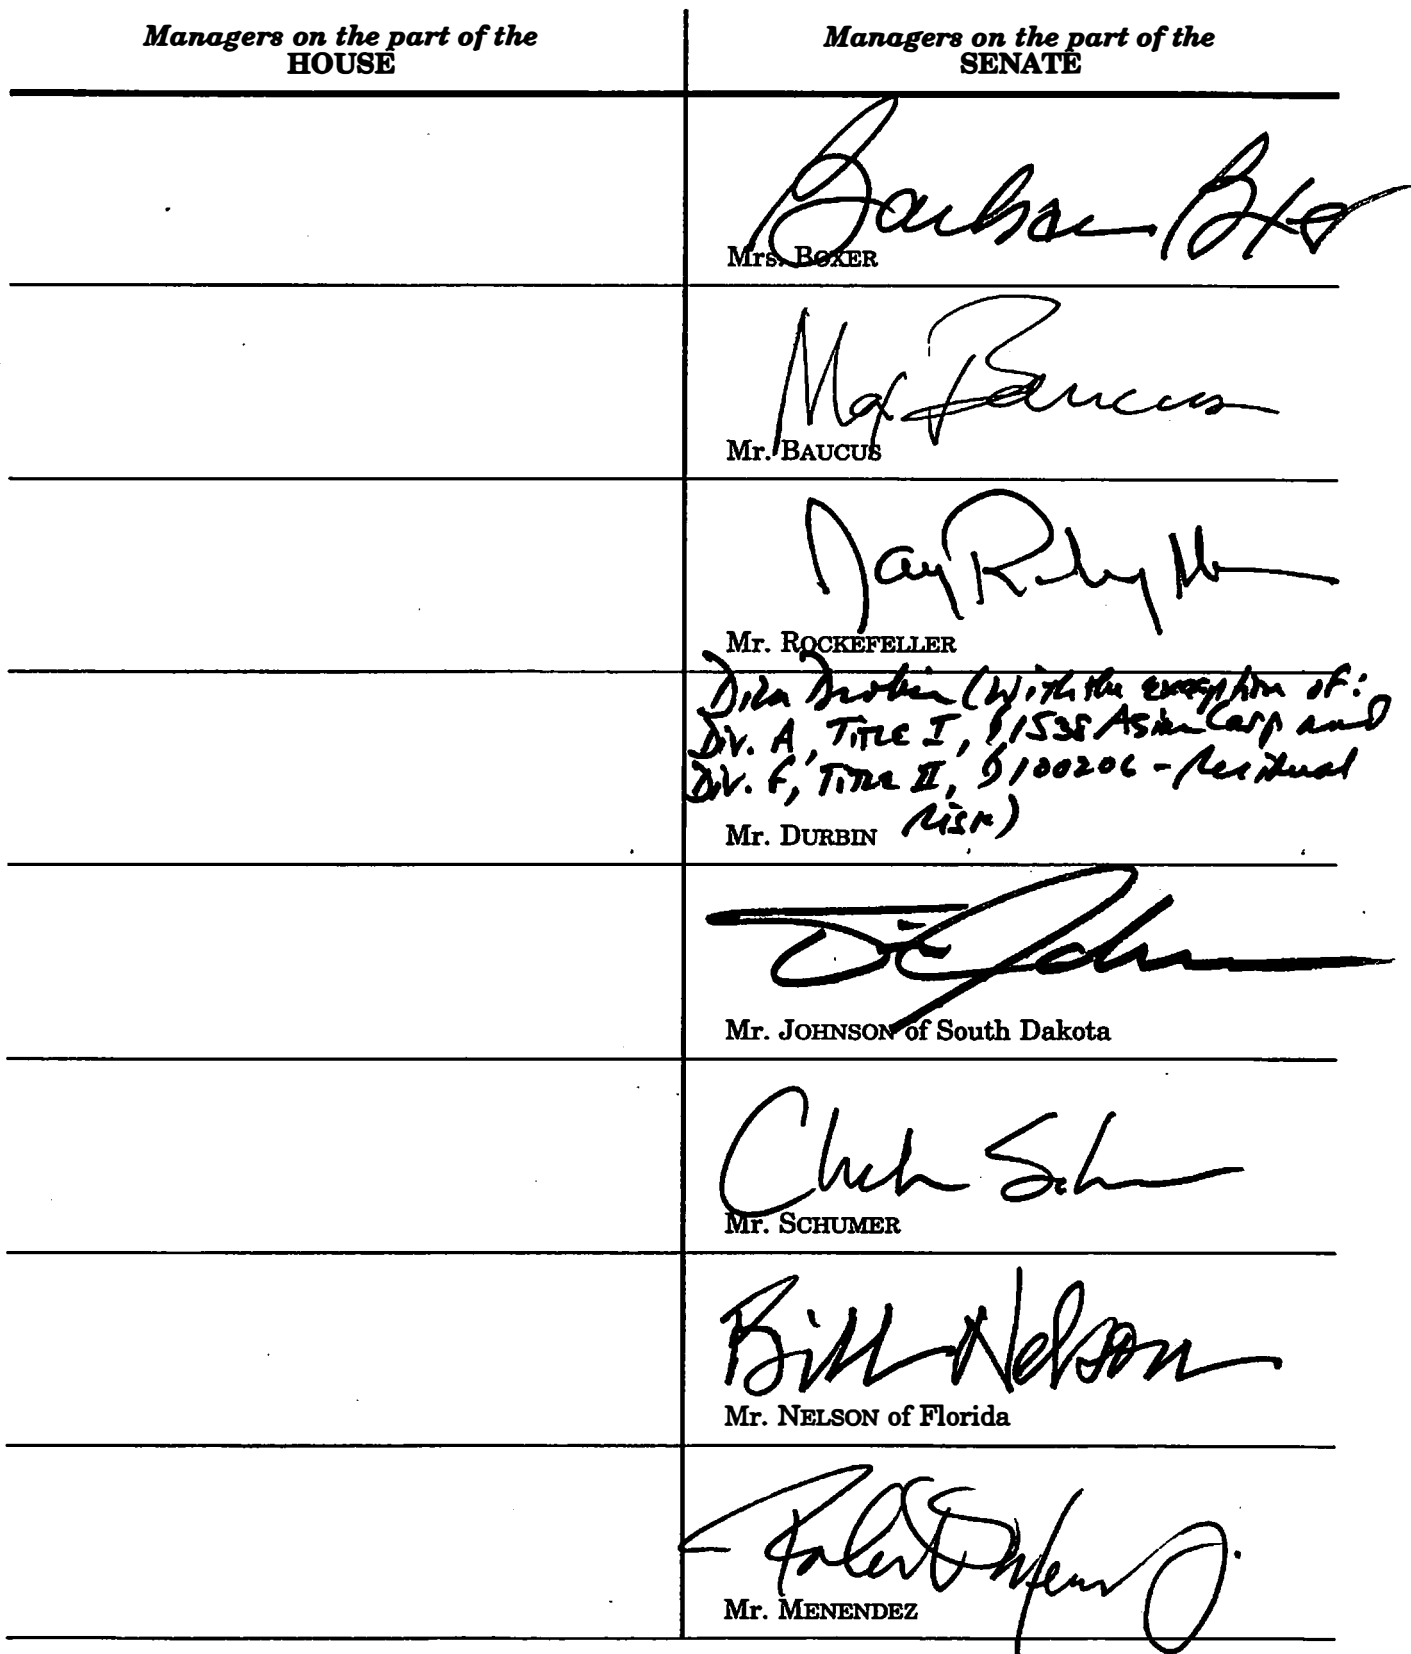 Managers on the part of the
HOUSE
Managers on the part of the
SENATE
Barbara Boxer
Mrs. BOXER
Max Baucus
Mr. BAUCUS
Jay Rockefeller
Mr. ROCKEFELLER
Dick Durbin (with the exception of:
Div. A, Title I, §1538 Asian Carp and
Div. F, Title II, §100206 - Residual
risk)
Mr. DURBIN
Tim Johnson
Mr. JOHNSON of South Dakota
Chuck Schumer
Mr. SCHUMER
Bill Nelson
Mr. NELSON of Florida
Robert Menendez
Mr. MENENDEZ